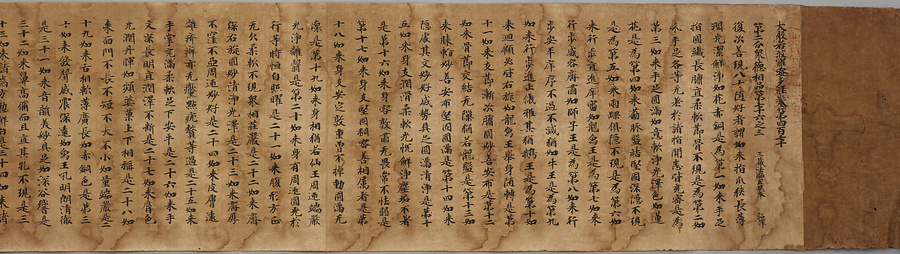 大般若波羅蜜多經卷第四百七十
第二分眾德相品第七十六之三 三藏法師玄奘奉 詔譯
復次善現八十隨好者謂如來指爪狹長薄
潤光潔鮮淨如花赤銅是為第一如來手足
指圓纖長𦟛直柔軟節骨不現是為第二如
來手足各等無差於諸指間悉皆充密是為
第三如來手足圓滿如意軟淨光澤色如蓮
花是為第四如來筋脈盤結堅固深隱不現
是為第五如來兩踝俱隱不現是為第六如
來行步直進庠審如龍象王是為第七如來
行步威容齊肅如師子王是為第八如來行
步安平庠序不過不減猶如牛王是為第九
如來行步進止儀雅猶如鵝王是為第十如
來迴顧必皆右旋如龍象王舉身隨轉是第
十一如來支節漸次𦟛圓妙善安布是第十二
如來骨節交結無隙猶若龍盤是第十三如
來膝輪妙善安布堅固圓滿是第十四如來
隱處其文妙好威勢具足圓滿清淨是第十
五如來身支潤滑柔軟光悅鮮淨塵垢不著
是第十六如來身容敦肅無畏常不怯弱是
第十七如來身支堅固稠密善相屬著是第
十八如來身支安定敦重曾不掉動圓滿無
壞是第十九如來身相猶若仙王周匝端嚴
光淨離翳是第二十如來身有周匝圓光於
行等時恒自照曜是二十一如來腹形方正
無欠柔軟不現眾相莊嚴是二十二如來臍
深右旋圓妙清淨光澤是二十三如來臍厚
不窪不凸周匝妙好是二十四如來皮膚遠
離疥癬亦無黶點疣贅等過是二十五如來
手掌充滿柔軟足下安平是二十六如來手
文深長明直潤澤不斷是二十七如來脣色
光潤丹暉如頻婆果上下相稱是二十八如
來面門不長不短不大不小如量端嚴是二
十九如來舌相軟薄廣長如赤銅色是第三
十如來發聲威震深遠如象王吼明朗清徹
是三十一如來音韻美妙具足如深谷響是
三十二如來鼻高脩而且直其孔不現是三
十三如來諸齒方整鮮白是三十四如來諸